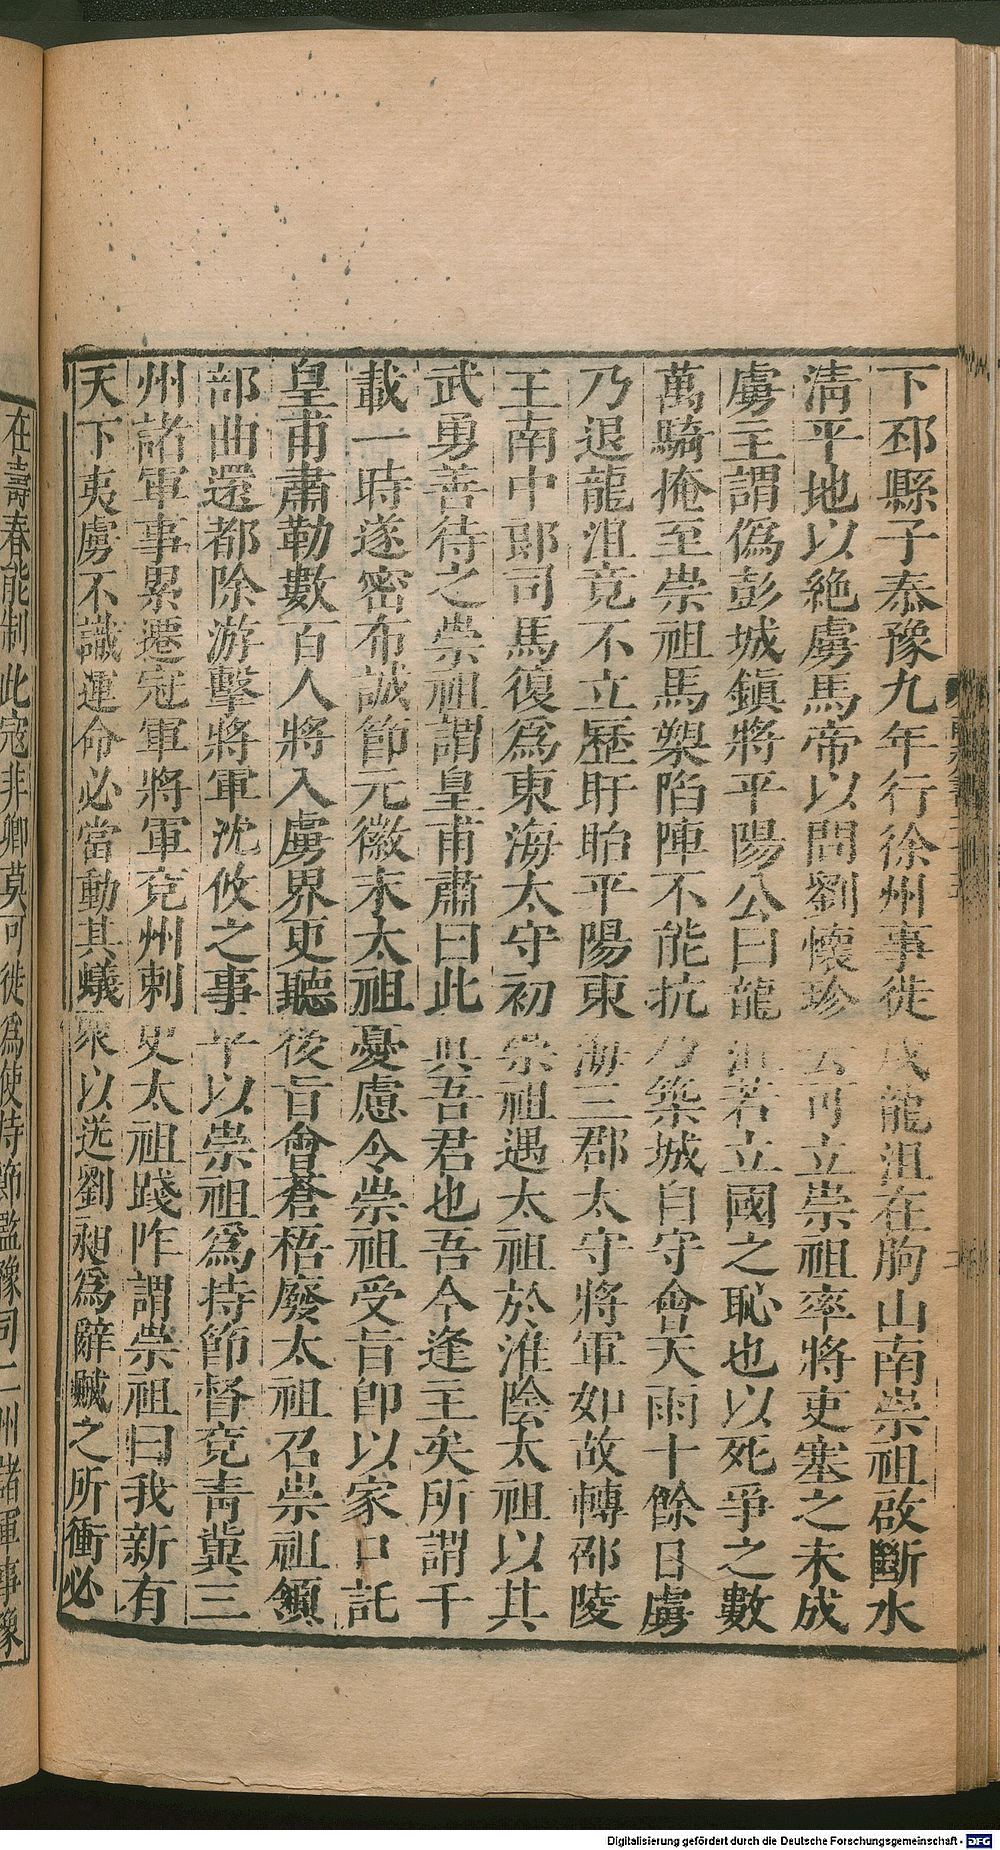 下邳縣子泰豫九年行徐州事徙戍龍沮在朐山南崇祖啟斷水
清平地以絕虜馬帝以問劉懷珍云可立崇祖率將吏塞之未成
虜主謂僞彭城鎮將平陽公曰龍沮若立國之恥也以死爭之數
萬騎掩至崇祖馬槊陷陣不能抗乃築城自守會天雨十餘日虜
乃退龍沮竟不立歷盱眙平陽東海三郡太守將軍如故轉邵陵
王南中郎司馬復爲東海太守初崇祖遇太祖於淮陰太祖以其
武勇善待之崇祖謂皇甫肅曰此眞吾君也吾今逢主矣所謂千
載一時遂密布誠節元徽末太祖憂慮令崇祖受旨卽以家口託
皇甫肅勒數百人將入虜界更聽後旨會蒼梧廢太祖召崇祖領
部曲還都除游擊將軍沈攸之事平以崇祖爲持節督兗青冀三
州諸軍事累遷冠軍將軍兗州刺史太祖踐阼謂崇祖曰我新有
天下夷虜不識運命必當動其蟻衆以送劉昶爲辭賊之所衝必
在壽春能制此寇非卿莫可徙爲使持節監豫司二州諸軍事豫
Digitalisierung gefördert durch die Deutsche Forschungsgemeinschaft - DFG